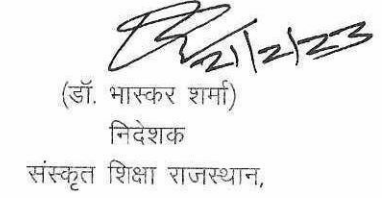 21/2/23
(डॉ. भास्कर शर्मा)
निदेशक
संस्कृत शिक्षा राजस्थान,